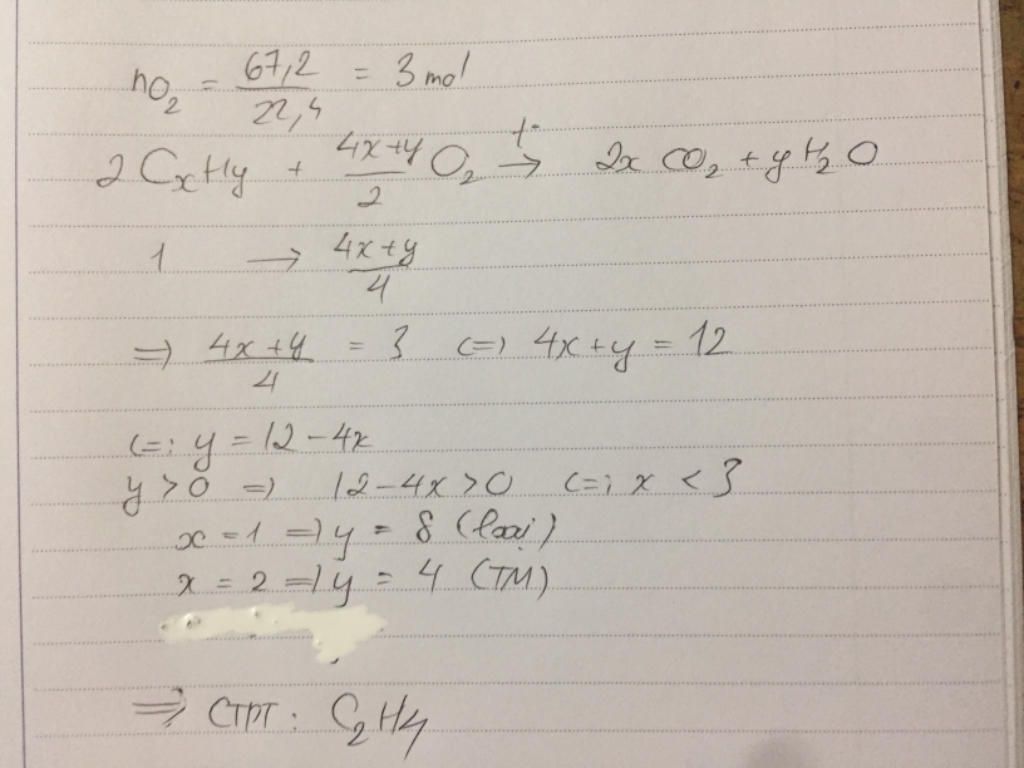 nO₂ = 67,2/22,4 = 3 mol
2CxHy + (4x+y)/2 O₂ →(t°) 2x CO₂ + y H₂O
1 → (4x+y)/4
=> (4x+y)/4 = 3 <=> 4x+y = 12
<=> y = 12-4x
y > 0 => 12-4x > 0 <=> x < 3
x = 1 => y = 8 (loại)
x = 2 => y = 4 (TM)
=> CTPT: C₂H₄